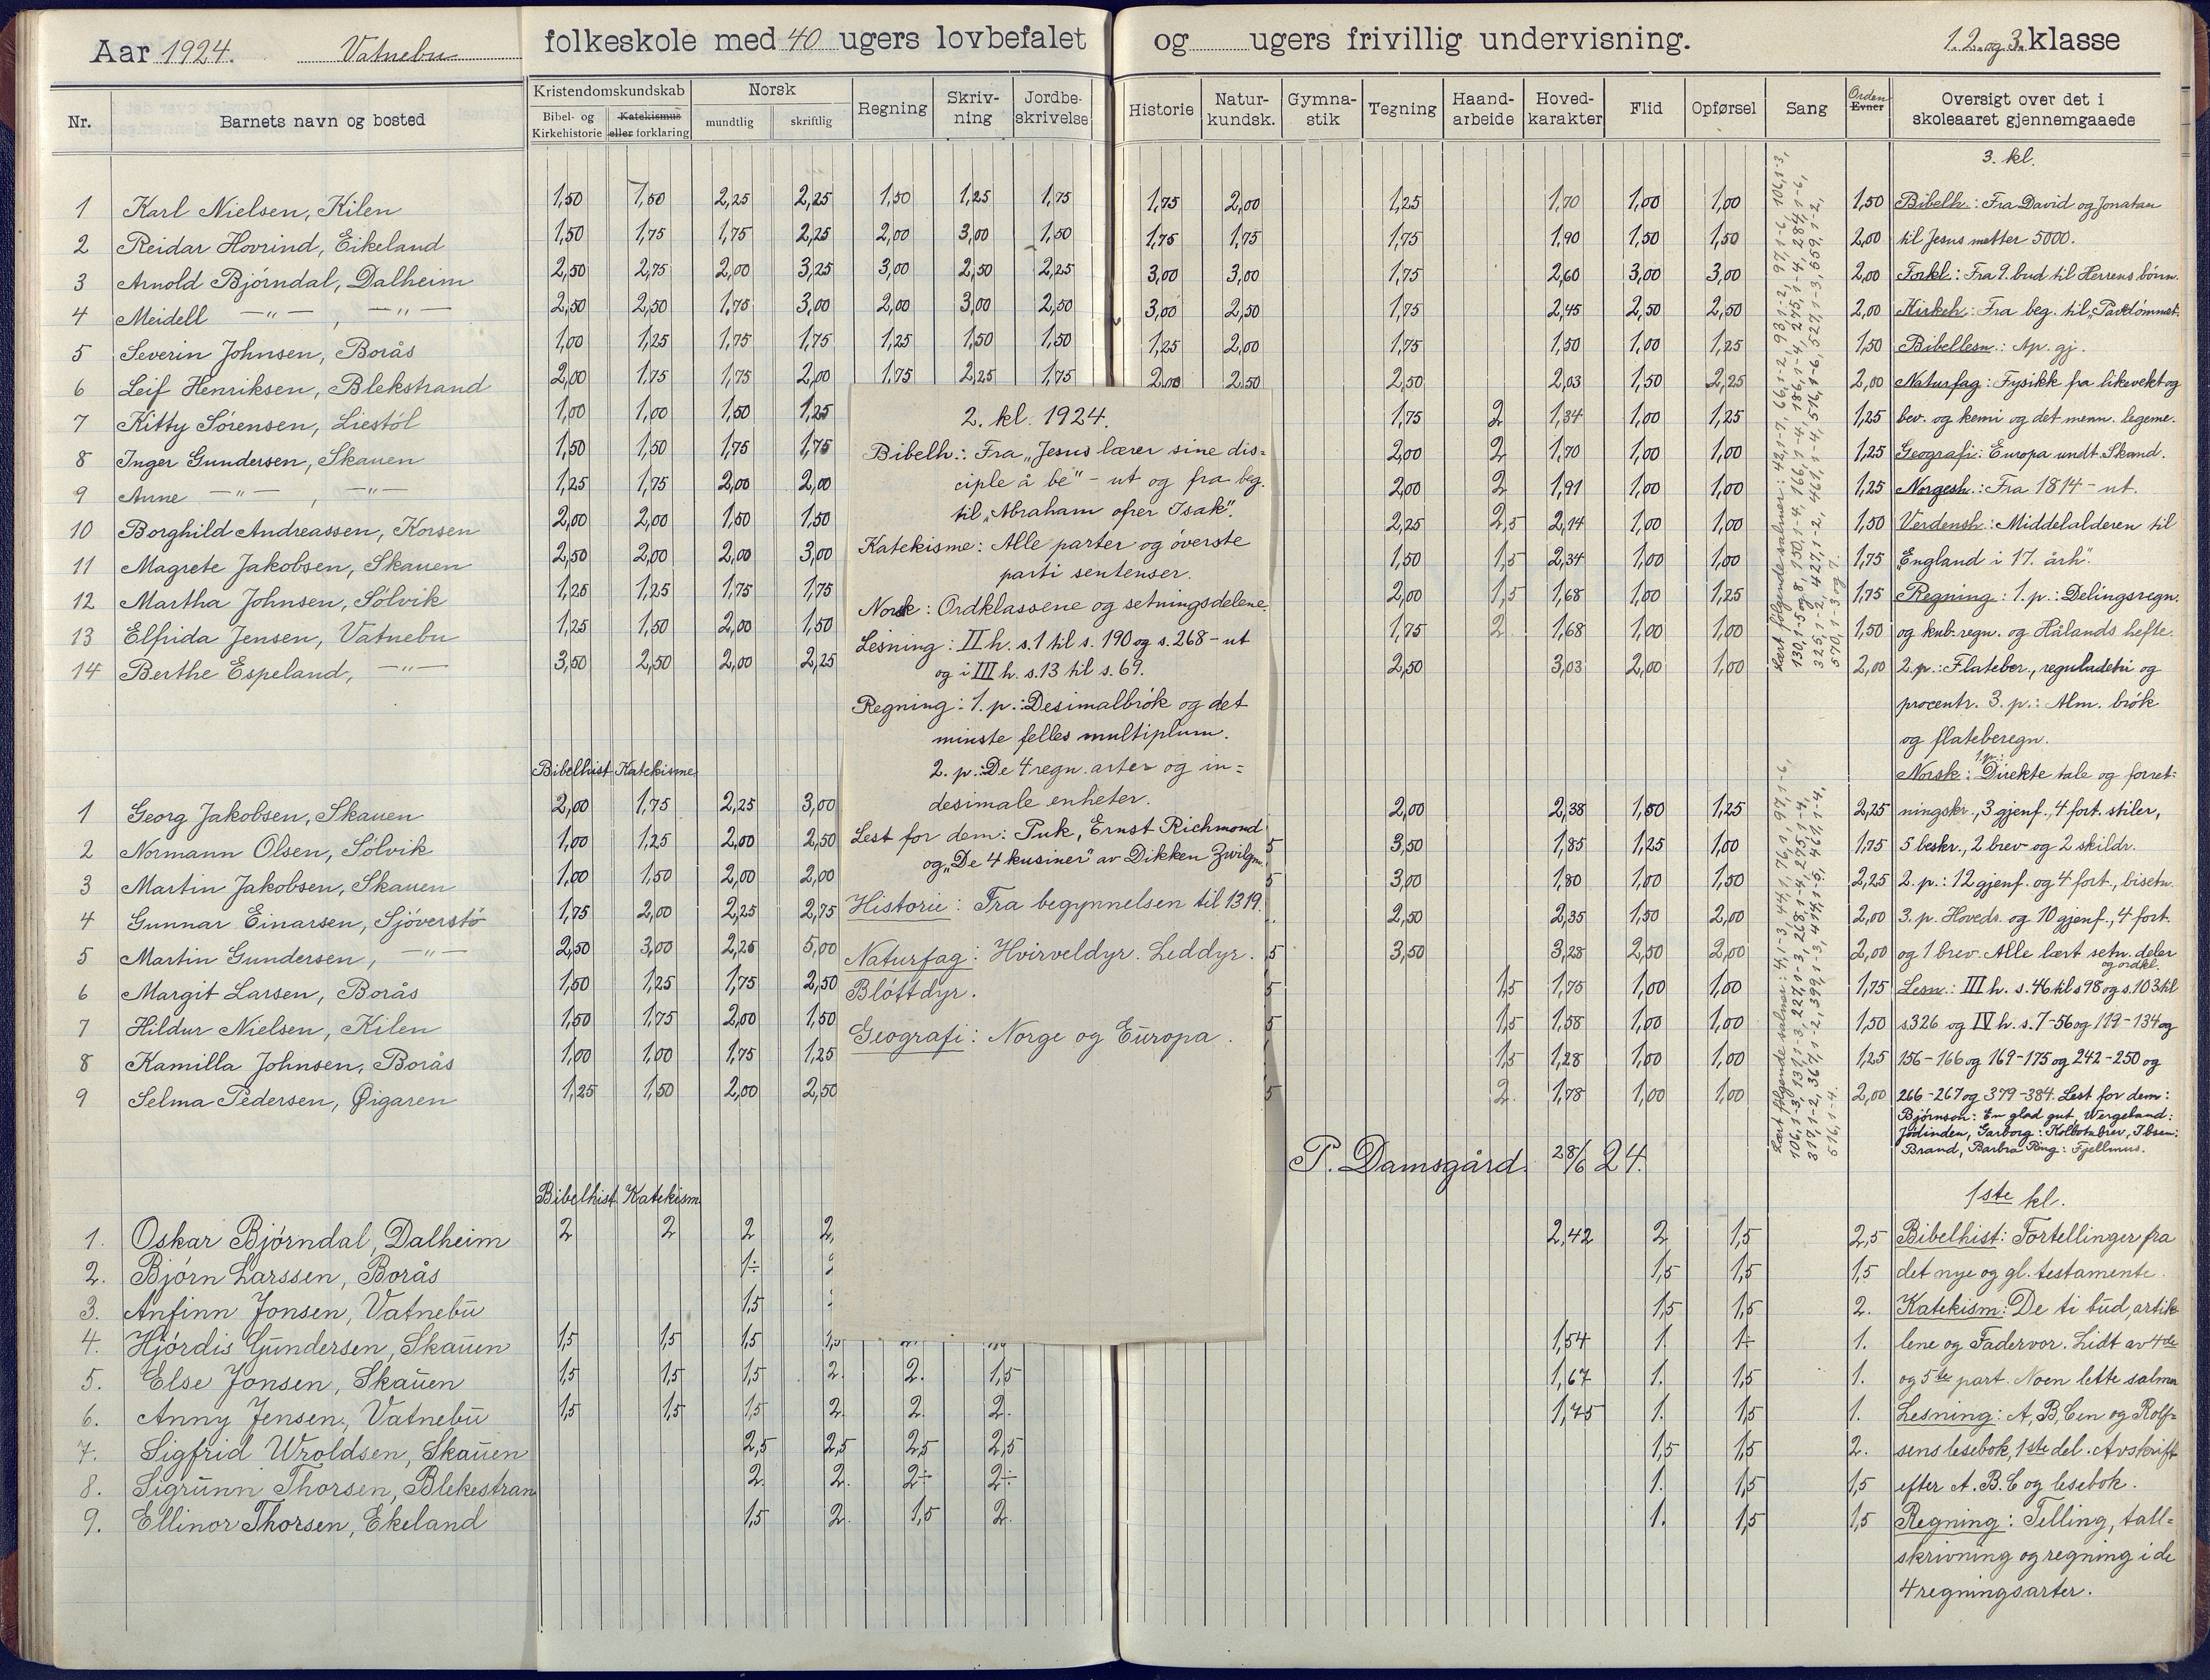 Aar 1924. Vatnebu folkeskole med 40 ugers lovbefalet og ugers frivillig undervisning. 1. 2. og 3. klasse
Nr. Barnets navn og bosted Kristendomskundskab Bibel- og Kirkehistorie Katekismus eller forklaring Norsk mundtlig skriftlig Regning Skriv-ning Jordbe-skrivelse Historie Natur-kundsk. Gymna-stik Tegning Haand-arbeide Hoved-karakter Flid Opførsel Sang Orden Evner Oversigt over det i skoleaaret gjennemgaaede
3. kl.
1 Karl Nielsen, Kilen 1,50 1,50 2,25 2,25 1,50 1,25 1,75 1,75 2,00 1,25 1,70 1,00 1,00 1,50 Bibelh.: Fra David og Jonatan
2 Reidar Hovrind, Eikeland 1,50 1,75 1,75 2,25 2,00 3,00 1,50 1,75 1,75 1,75 1,90 1,50 1,50 2,00 til Jesus metter 5000.
3 Arnold Bjørndal, Dalheim 2,50 2,75 2,00 3,25 3,00 2,50 2,25 3,00 3,00 1,75 2,60 3,00 3,00 2,00 Forkl.: Fra 9. bud til Herrens bønn.
4 Meidell —"— , —"— 2,50 2,50 1,75 3,00 2,00 3,00 2,50 3,00 2,50 1,75 2,45 2,50 2,50 2,00 Kirkeh: Fra beg. til "Pavedømmet.
5 Severin Johnsen, Borås 1,00 1,25 1,75 1,75 1,25 1,50 1,50 1,25 2,00 1,75 1,50 1,00 1,25 1,50 Bibellesn.: Ap. gj.
6 Leif Henriksen, Blekstrand 2,00 1,75 1,75 2,00 1,75 2,25 1,75 2,00 2,50 2,50 2,03 1,50 2,25 2,00 Naturfag: Fysikk fra likevekt og
7 Kitty Sørensen, Liestøl 1,00 1,00 1,50 1,25 1,75 2 1,34 1,00 1,25 1,25 bev. og kemi og det menn. legeme.
8 Inger Gundersen, Skauen 1,50 1,50 1,75 1,75 2,00 2 1,70 1,00 1,00 1,25 Geografi: Europa undt. Skand.
9 Anne —"— , —"— 1,25 1,75 2,00 2,00 2,00 2 1,91 1,00 1,00 1,25 Norgesh.: Fra 1814 – ut.
10 Borghild Andreassen, Korsen 2,00 2,00 1,50 1,50 2,25 2,5 2,14 1,00 1,00 1,50 Verdensh.: Middelalderen til
11 Magrete Jakobsen, Skauen 2,50 2,00 2,00 3,00 1,50 1,5 2,34 1,00 1,00 1,75 "England i 17. årh".
12 Martha Johnsen, Sølvik 1,25 1,25 1,75 1,75 2,00 1,5 1,68 1,00 1,25 1,75 Regning: 1. p.: Delingsregn.
13 Elfrida Jensen, Vatnebu 1,25 1,50 2,00 1,50 1,75 2 1,68 1,00 1,00 1,50 og kub.regn. og Hålands hefte.
14 Berthe Espeland, —"— 3,50 2,50 2,00 2,25 2,50 3,03 2,00 1,00 2,00 2. p.: Flateber., reguladetri og
procentr. 3. p.: Alm. brøk
og flateberegn.
Norsk: 1.p.: Direkte tale og forret-
Bibelhist Katekisme
1 Georg Jakobsen, Skauen 2,00 1,75 2,25 3,00 2,00 2,38 1,50 1,25 2,25 ningskr., 3 gjenf., 4 fort. stiler,
2 Normann Olsen, Sølvik 1,00 1,25 2,00 2,50 5 3,50 1,85 1,25 1,00 1,75 5 beskr., 2 brev og 2 skildr.
3 Martin Jakobsen, Skauen 1,00 1,50 2,00 2,00 5 3,00 1,80 1,00 1,50 2,25 2. p.: 12 gjenf. og 4 fort., bisetn.
4 Gunnar Einarsen, Sjøverstø 1,75 2,00 2,25 2,75 2,50 2,35 1,50 2,00 2,00 3. p. Hoveds. og 10 gjenf., 4 fort.
5 Martin Gundersen, —"— 2,50 3,00 2,25 5,00 5 3,50 3,28 2,50 2,00 2,00 og 1 brev. Alle lært setn. deler og ordkl.
6 Margit Larsen, Borås 1,50 1,25 1,75 2,50 5 1,5 1,75 1,00 1,00 1,75 Lesn.: III h. s. 46 til s 98 og s. 103 til
7 Hildur Nielsen, Kilen 1,50 1,75 2,00 1,50 5 1,5 1,58 1,00 1,00 1,50 s 326 og IV h. s. 7-56 og 119-134 og
8 Kamilla Johnsen, Borås 1,00 1,00 1,75 1,25 1,5 1,28 1,00 1,00 1,25 156-166 og 169-175 og 242-250 og
9 Selma Pedersen, Øigaren 1,25 1,50 2,00 2,50 5 2 1,78 1,00 1,00 2,00 266-267 og 379-384. Lest for dem:
Bjørnson: En glad gut, Wergeland:
Jødinden, Garborg: Kolbotnbrev, Ibsen:
Brand, Barbra Ring: Fjellmus.
P. Damsgård 28/6 24.
1ste kl.
Bibelhist Katekism
1. Oskar Bjørndal, Dalheim 2 2 2 2, 2,42 2 1,5 2,5 Bibelhist: Fortellinger fra
2. Bjørn Larssen, Borås 1÷ 1,5 1,5 1,5 det nye og gl. testamente.
3. Anfinn Jonsen, Vatnebu 1,5 1,5 1,5 2. Katekism: De ti bud, artik-
4. Hjørdis Gundersen, Skauen 1,5 1,5 1,5 1,5 1,54 1. 1÷ 1. lene og Fadervor. Lidt av 4de
5. Else Jonsen, Skauen 1,5 1,5 1,5 2. 2. 1,5 1,67 1. 1,5 1. og 5te part. Noen lette salmer
6. Anny Jensen, Vatnebu 1,5 1,5 1,5 2. 2. 2. 1,75 1. 1,5 1. Lesning: A, B, Cen og Rolf-
7. Sigfrid Wroldsen, Skauen 2,5 2,5 2,5 2,5 1,5 1,5 2. sens lesebok, 1ste del. Avskrift
8. Sigrunn Thorsen, Blekestran 2. 2. 2÷ 2÷ 1. 1,5 1,5 efter A. B. C og lesebok.
9. Ellinor Thorsen, Ekeland 1,5 2. 1,5 2. 1. 1,5 1,5 Regning: Telling, tall-
skrivning og regning i de
4 regningsarter.
2. kl. 1924.
Bibelh.: Fra "Jesus lærer sine dis-
ciple å be" – ut og fra beg.
til "Abraham ofrer Isak".
Katekisme: Alle parter og øverste
parti sentenser.
Norsk: Ordklassene og setningsdelene.
Lesning: II h. s. 1 til s. 190 og s. 268 – ut
og i III h. s. 13 til s. 69.
Regning: 1. p.: Desimalbrøk og det
minste felles multiplum.
2. p.: De 4 regn. arter og in-
desimale enheter.
Lest for dem: Puk, Ernst Richmond
og "De 4 kusiner" av Dikken Zwilgm.
Historie: Fra begynnelsen til 1319.
Naturfag: Hvirveldyr. Leddyr.
Bløttdyr.
Geografi: Norge og Europa.